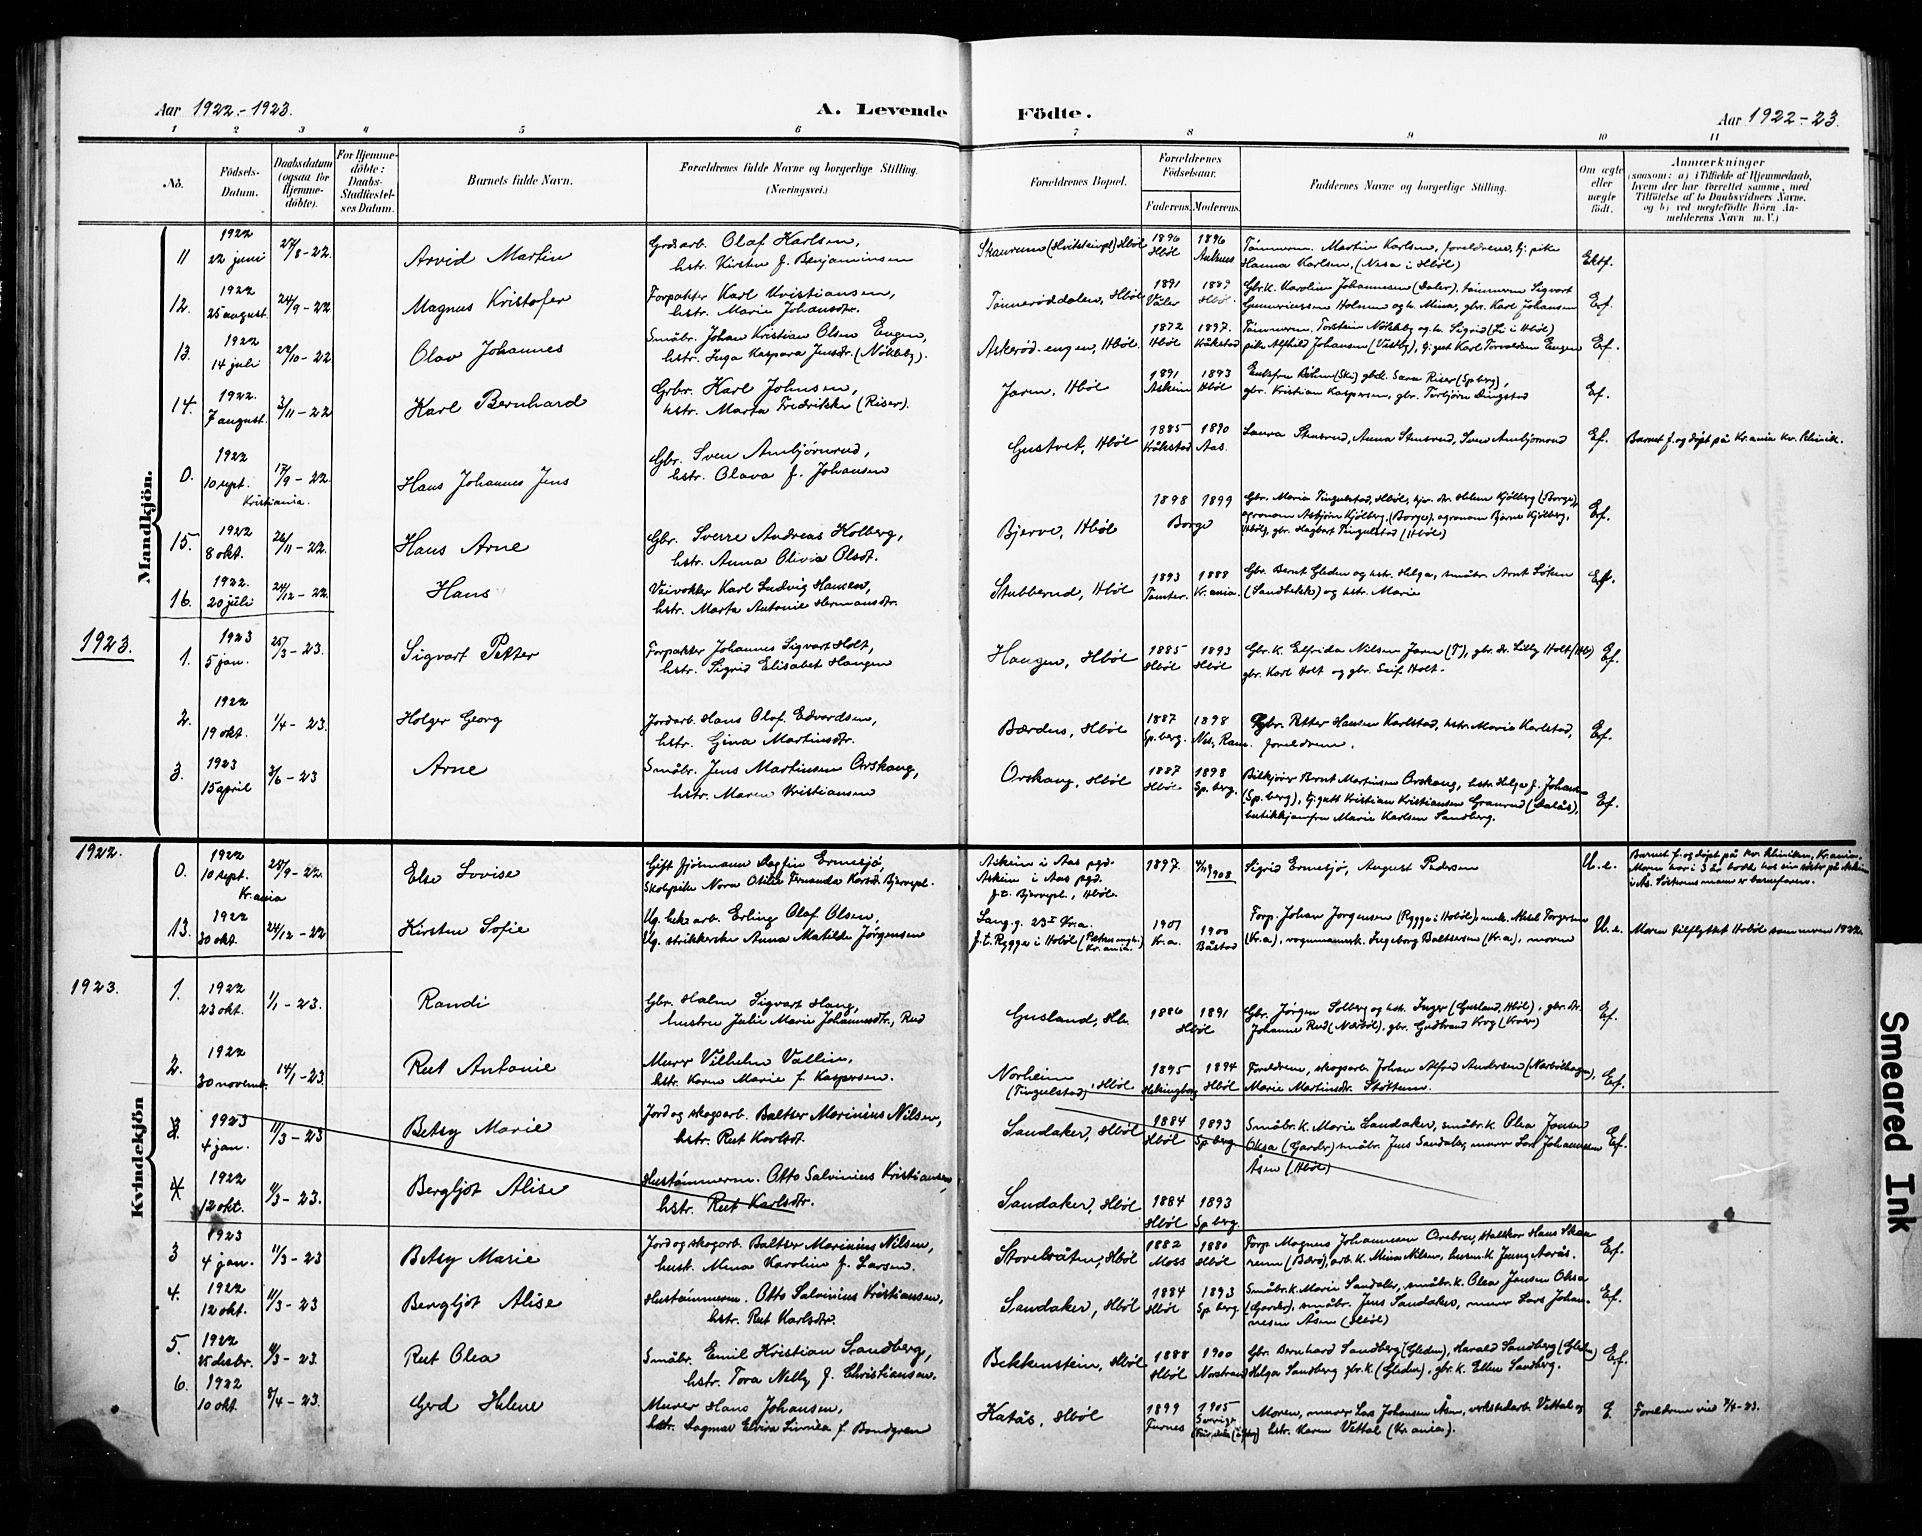 Aar 1922.-1923. A. Levende
Födte. Aar 1922-23.
1 2 3 4 5 6 7 8 9 10 11
No. Födsels-Datum. Daabsdatum (ogsaa for Hjemme-döbte). For Hjemme-döbte: Daabs-Stadfæstel-ses Datum. Barnets fulde Navn. Forældrenes fulde Navne og borgerlige Stilling. (Næringsvei.)
Forældrenes Bopæl. Forældrenes Födselsaar. Faderens. Moderens. Faddernes Navne og borgerlige Stilling. Om ægte eller uægte födt. Anmærkninger (saasom: a) i Tilfælde af Hjemmedaab, hvem der har forrettet samme, med Tilföielse af to Daabsvidners Navne, og b) ved uægtefödte Börn An-melderens Navn m. V.)
Mandkjön.
11 1922 22 juni 27/8-22. Arvid Martin Grdsarb. Olaf Karlsen, hstr. Kirsten f. Benjaminsen
Skaurum (Hvitsteinpl) Hböl 1896 Hböl 1896 Tömmerm. Martin Karlsen, foreldrene, tj. pike Hanna Karlsen, (Nesa i Hböl)
12. 1922 25 august. 24/9-22 Magnus Kristofer Forpakter Karl Kristiansen, hstr. Marie Johansdtr.
Tönnerøddalen, Hböl 1891 Våler 1889 Hböl Gbr.k. Karoline Johannessen (Daler), tömmerm Sigvart Gunneriussen Holmen og h. Mina, gbr. Karl Johansen Erf.
13. 1922 14 juli 22/10-22 Olav Johannes Småbr. Johan Kristian Olsen Engen, hstr. Inga Kaspara Jensdtr. (Nökleby).
Askeröd-engen, Hböl 1872 Hböl 1897. Kråkstad Tömmerm. Torstein Nökleby og h. Sigrid (Li i Hböl) pike Alfhild Johansen (Vestby), tj.gut Karl Torvaldsen Engen Ef.
14. 1922. 7 august. 5/11-22 Karl Bernhard Grbr. Karl Johnsen, hstr. Marta Fredrikke (Riser).
Jaren, Hböl 1891 Askim 1893 Hböl Enkefru Böhm (Ski) gbdk. Sara Riser (Spberg), gbr. Kristian Kaspersen, gbr. Torbjörn Dingstad Ef.
0. 1922 10 sept. Kristiania. 17/9-22 Hans Johannes Jens Gbr. Sven Ambjörnrud, hstr. Olava f. Johansen
Gustvet, Hböl 1885 Kråkstad 1890 Aas. Laura Stensrud, Anna Stensrud, Sven Ambjörnrud Ef. Barnet f. og döpt på Kr.ania kv. klinik.
15. 1922 8 okt. 26/11-22. Hans Arne Gbr. Sverre Andreas Kolberg, hstr. Anna Olivia Olsdt.
Bjerve, Hböl 1898 1899 Borge Gbr. Maria Tingulstad, Hböl, hjv. dr. Helene Kjölberg (Borge), agronom Asbjörn Kjölberg, (Borge), agronom Bjarne Kjölberg, (Hböl), gbr. Hagbart Tingulstad (Hböl) Ef.
16. 1922. 20 juli 24/12-22. Hans Veivokter Karl Ludvig Hansen, hstr. Marta Antonie Hermansdtr.
Stubberud, Hböl 1893 Tomter. 1888 Kr.ania Gbr. Bernt Gleden og hstr. Helga, småbr. Arnt Löken (Sandbekk) og hstr. Marie Ef.
1923.
1. 1923 5 jan. 25/3-23. Sigvart Petter Forpakter Johannes Sigvart Holt, hstr. Sigrid Elisabet Haugen
Haugen, Hböl 1885 Hböl 1893 Hböl Gbr.k. Elfrida Nilsen Jaren (T), gbr. dr. Lilly Holt (Hb) gbr. Karl Holt og gbr. Leif Holt. Ef.
2. 1922 19 okt. 1/4-23. Holger Georg Jordarb. Hans Olaf Edvardsen, hstr. Gina Martinsdtr.
Bærdus, Hböl 1887 Sp.berg. 1898 Nes, Rom. Gbr. Petter Hansen Karlstad, hstr. Marie Karlstad, foreldrene. Ef.
3. 1923 15 april 3/6-23 Arne Småbr. Jens Martinsen Orskaug, hstr. Maren Kristiansen
Orskaug, Hböl 1887 Hböl 1898 Sp.berg. Bilkjörer Bernt Martinsen Orskaug, hstr. Helga f. Johansen (Sp.berg), tj.gutt Kristian Kristiansen Granrud (Dalås), butikkjomfru Marie Karlsen Sandberg. Ef.
Kvindekjön
1922.
0. 1922 10 sept. Kr.ania 24/9-22. Else Lovise Gift fjösmann Dagfin Ermesjö Skolepike Nora Otilie Fernanda Karlsd. Bjervepl.
Askim i Aas pgd. Askim i Aas pgd. f.t. Bjervepl., Hböl. 1897. 4/11 1908 Sigrid Ermesjö, August Pedersen U.e. Barnet f. og döpt på kv. kliniken, Kr.ania. Moren har i 3 år bodd hos sin söster på Askim i Ås. Sösterens mann er barnefaren.
13. 1922 30 okt. 24/12-22 Kirsten Sofie Ug. heksarb. Erling Olaf Olsen, Ug. strikkerske Anna Matilde Jörgensen
Langg. 23 I Kr.a. f.t. Rygge i Hoböl 1901 Kr.a. 1900 Båstad Forp. Johan Jorgensen (Rygge i Hoböl), snek. Aksel Torgersen (Kr.a), vognmannsk. Ingeborg Baltsersen (Kr.a), moren U.e. Moren tilflyttet Hoböl sommeren 1922.
1923.
1. 1922 23 okt. 1/1-23. Randi Gbr. Halm Sigvart Haug, hustru Julie Marie Johannesdtr, Rud
Gusland, Hb. 1886 1891 Hböl Gbr. Jörgen Solberg og hst. Inger (Gusland, Hböl), gbr. dr. Johanne Rud (Nærböl), gbr. Gudbrand Krog (Kroer) Ef.
2. 1922 30 novemb. 14/1-23. Rut Antonie Murer Vilhelm Vallin, hstr. Karen Marie f. Kaspersen.
Norheim (Tingulstad), Hböl 1895 Helsingborg 1894 Hböl Foreldrene, skogsarb. Johan Alfred Andersen (Nærbölhagen), Marie Martinsdtr. Stöttum. Ef.
3. 1923 4 jan. 11/3-23 Betsy Marie Jord og skogsarb. Baltser Marinius Nilsen, hstr. Rut Karlsdt.
Sandaker, Hböl 1884 Hböl 1893 Sp.berg Småbr.k. Marie Sandaker, småbr.k. Olea Jensen Oksa (Garder) småbr. Jens Sandaker, murer Lars Johannessen Åsen (Hböl) Ef.
4 1922 12 okt. 11/3-23. Bergljot Alise Hustömmerm. Otto Salvinius Kristiansen, hstr. Rut Karlsdtr.
Sandaker, Hböl 1884 Hböl 1893 Sp.berg.
3 1923 4 jan. 11/3-23 Betsy Marie Jord og skogarb. Baltser Marinius Nilsen, hust. Mina Karoline f. Larsen.
Storebråten, Hböl 1882 Moss 1880 Hböl Forp. Magnus Johannessen Orebru, Hans Skaurum, arb.k. Mina Nilsen, husm.k. Jenny Aarås. Ef.
4. 1922 12 okt. 11/3-23 Bergljot Alise Hustömmerm. Otto Salvinius Kristiansen, hstr. Rut Karlsdtr.
Sandaker, Hböl 1884 Hböl 1893 Sp.berg. Småbr.k. Marie Sandaker, småbr.k. Olea Jensen Oksa (Garder), småbr. Jens Sandaker, murer Lars Johannesen Åsen (Hböl) Ef.
5. 1922 25 desbr. 11/3-23. Rut Olea Småbr. Emil Kristian Sandberg, hstr. Tora Nelly f. Christiansen.
Bekkenstein, Hböl 1888 Hböl 1900 Norstrand Gbr. Bernhard Sandberg (Gleden), Harald Sandberg (Gleden) Helga Sandberg gbr.k. (Gleden). gbr.k. Ellen Sandberg. Ef.
6. 1922 10 okt. 8/4-23. Gerd Helene Murer Hans Johansen, hstr. Dagmar Elvira Linnea f. Bondgren
Katås, Hböl 1899 Furnes 1905 Sverige Moren, murer Lars Johansen Åsen, verkstedarb. Vettal og hstr. Karen Vettal (Kr.ania). E. Foreldrene viet 7/4-23.
Smeared Ink